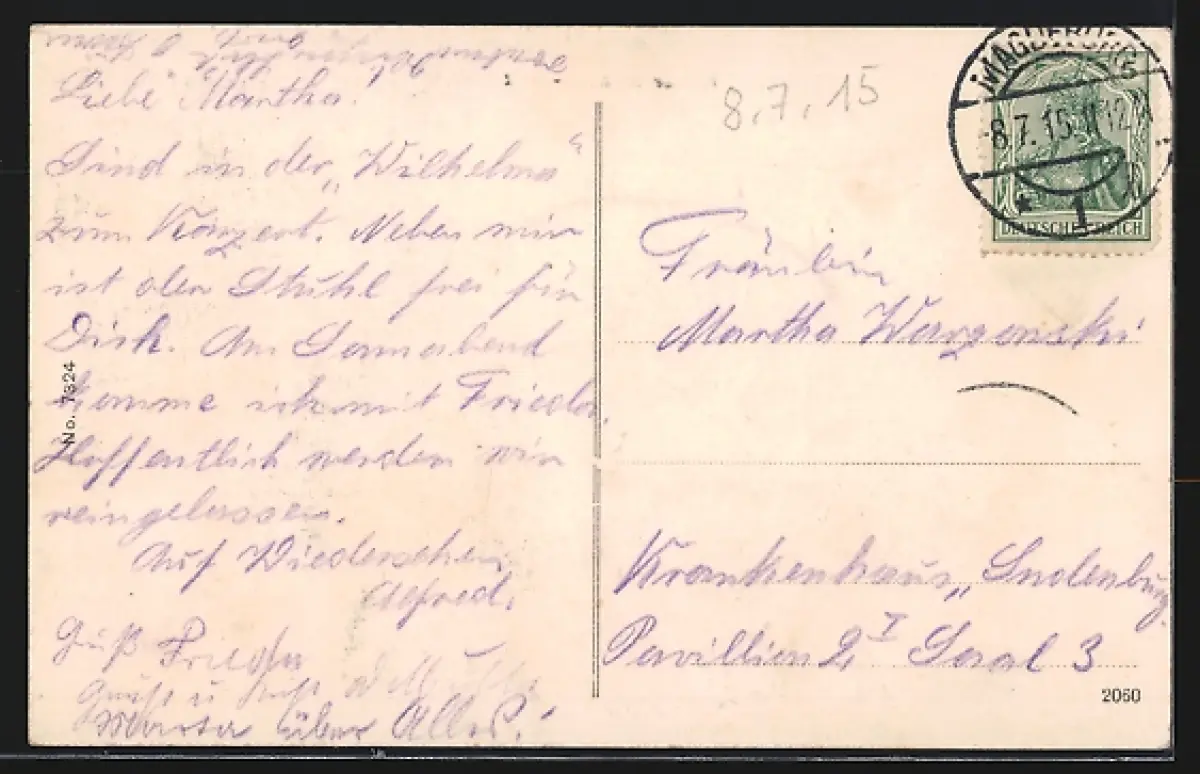 Liebe Martha!
Sind in der „Wilhelma“
zum Konzert. Neben mir
ist der Stuhl frei für
Dich. Am Sonnabend
komme ich mit Frieda.
Hoffentlich werden wir
reingelassen.
Auf Wiedersehen
Alfred.
Gruß Frieda
Marta über Alles!
No. 7324
8.7.15
MAGDEBURG
8.7.15
* 1
DEUTSCHES REICH
Fräulein
Martha Warzonski
Krankenhaus „Sudenburg
Pavillion 2 I Saal 3
2060